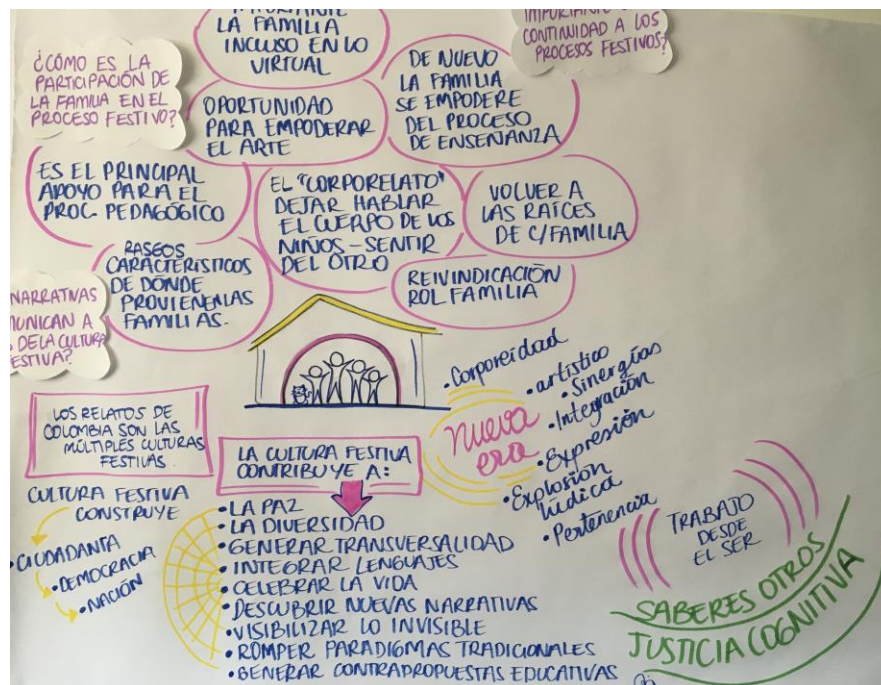 LA FAMILIA
INCLUSO EN LO
VIRTUAL
CONTINUIDAD A LOS
PROCESOS FESTIVOS?
¿CÓMO ES LA
PARTICIPACIÓN DE
LA FAMILIA EN EL
PROCESO FESTIVO?
OPORTUNIDAD
PARA EMPODERAR
EL ARTE
DE NUEVO
LA FAMILIA
SE EMPODERE
DEL PROCESO
DE ENSEÑANZA
ES EL PRINCIPAL
APOYO PARA EL
PROC. PEDAGÓGICO
EL "CORPORELATO"
DEJAR HABLAR
EL CUERPO DE LOS
NIÑOS - SENTIR
DEL OTRO
VOLVER A
LAS RAÍCES
DE C/FAMILIA
RASGOS
CARACTERÍSTICOS
DE DÓNDE
PROVIENEN LAS
FAMILIAS.
REIVINDICACIÓN
ROL FAMILIA
NARRATIVAS
UNICAN A
DE LA CULTURA
ESTIVA?
LOS RELATOS DE
COLOMBIA SON LAS
MÚLTIPLES CULTURAS
FESTIVAS.
CULTURA FESTIVA
CONSTRUYE
• CIUDADANÍA
• DEMOCRACIA
• NACIÓN
LA CULTURA FESTIVA
CONTRIBUYE A:
• LA PAZ
• LA DIVERSIDAD
• GENERAR TRANSVERSALIDAD
• INTEGRAR LENGUAJES
• CELEBRAR LA VIDA
• DESCUBRIR NUEVAS NARRATIVAS
• VISIBILIZAR LO INVISIBLE
• ROMPER PARADIGMAS TRADICIONALES
• GENERAR CONTRAPROPUESTAS EDUCATIVAS
nueva
era
• Corporeidad
• artístico
• Sinergías
• Integración
• Expresión
• Explosión
lúdica
• Pertenencia
TRABAJO
DESDE
EL SER
SABERES OTROS
JUSTICIA COGNITIVA